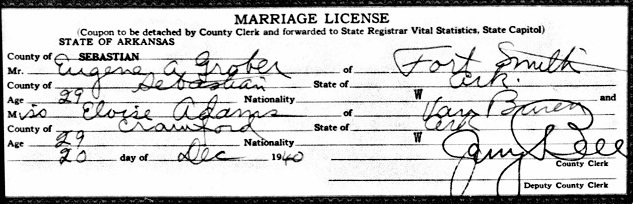 MARRIAGE LICENSE
(Coupon to be detached by County Clerk and forwarded to State Registrar Vital Statistics, State Capitol)
STATE OF ARKANSAS
County of SEBASTIAN
Mr. Eugene A Grober of Fort Smith
County of Sebastian State of Ark.
Age 29 Nationality W and
Miss Eloise Adams of Van Buren
County of Crawford State of Ark
Age 29 Nationality W
20 day of Dec 1940
County Clerk
Deputy County Clerk